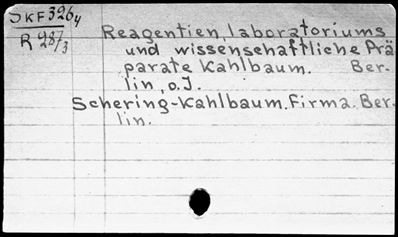 SKF 326 4
R 287 3
Reagentien, laboratoriums
und wissenschaftliche Prä
parate Kahlbaum. Ber-
lin, o.J.
Schering-Kahlbaum. Firma. Ber-
lin.